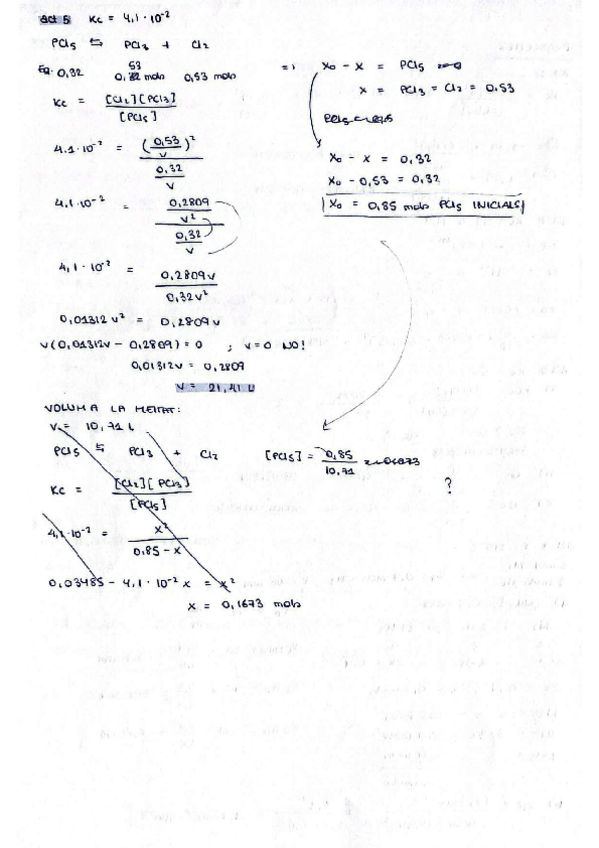 Act 5  Kc = 4,1·10⁻²
PCl5 ⇆ PCl3 + Cl2
Eq. 0,32  53 0,32 mols  0,53 mols
Kc = [Cl2][PCl3] / [PCl5]
4.1·10⁻² = (0,53/V)² / (0,32/V)
4,1·10⁻² = (0,2809/V²) / (0,32/V)
4,1·10⁻² = 0,2809V / 0,32V²
0,01312 V² = 0,2809V
V(0,01312V - 0,2809) = 0 ; V=0 NO!
0,01312V = 0,2809
V = 21,41 L
=> X0 - X = PCl5
X = PCl3 = Cl2 = 0,53
X0 - X = 0,32
X0 - 0,53 = 0,32
X0 = 0,85 mols PCl5 INICIALS
VOLUM A LA MEITAT:
V = 10,71 L
PCl5 ⇆ PCl3 + Cl2  [PCl5] = 0,85 / 10,71
?
Kc = [Cl2][PCl3] / [PCl5]
4,1·10⁻² = X² / 0,85 - X
0,03485 - 4,1·10⁻² X = X²
X = 0,1673 mols